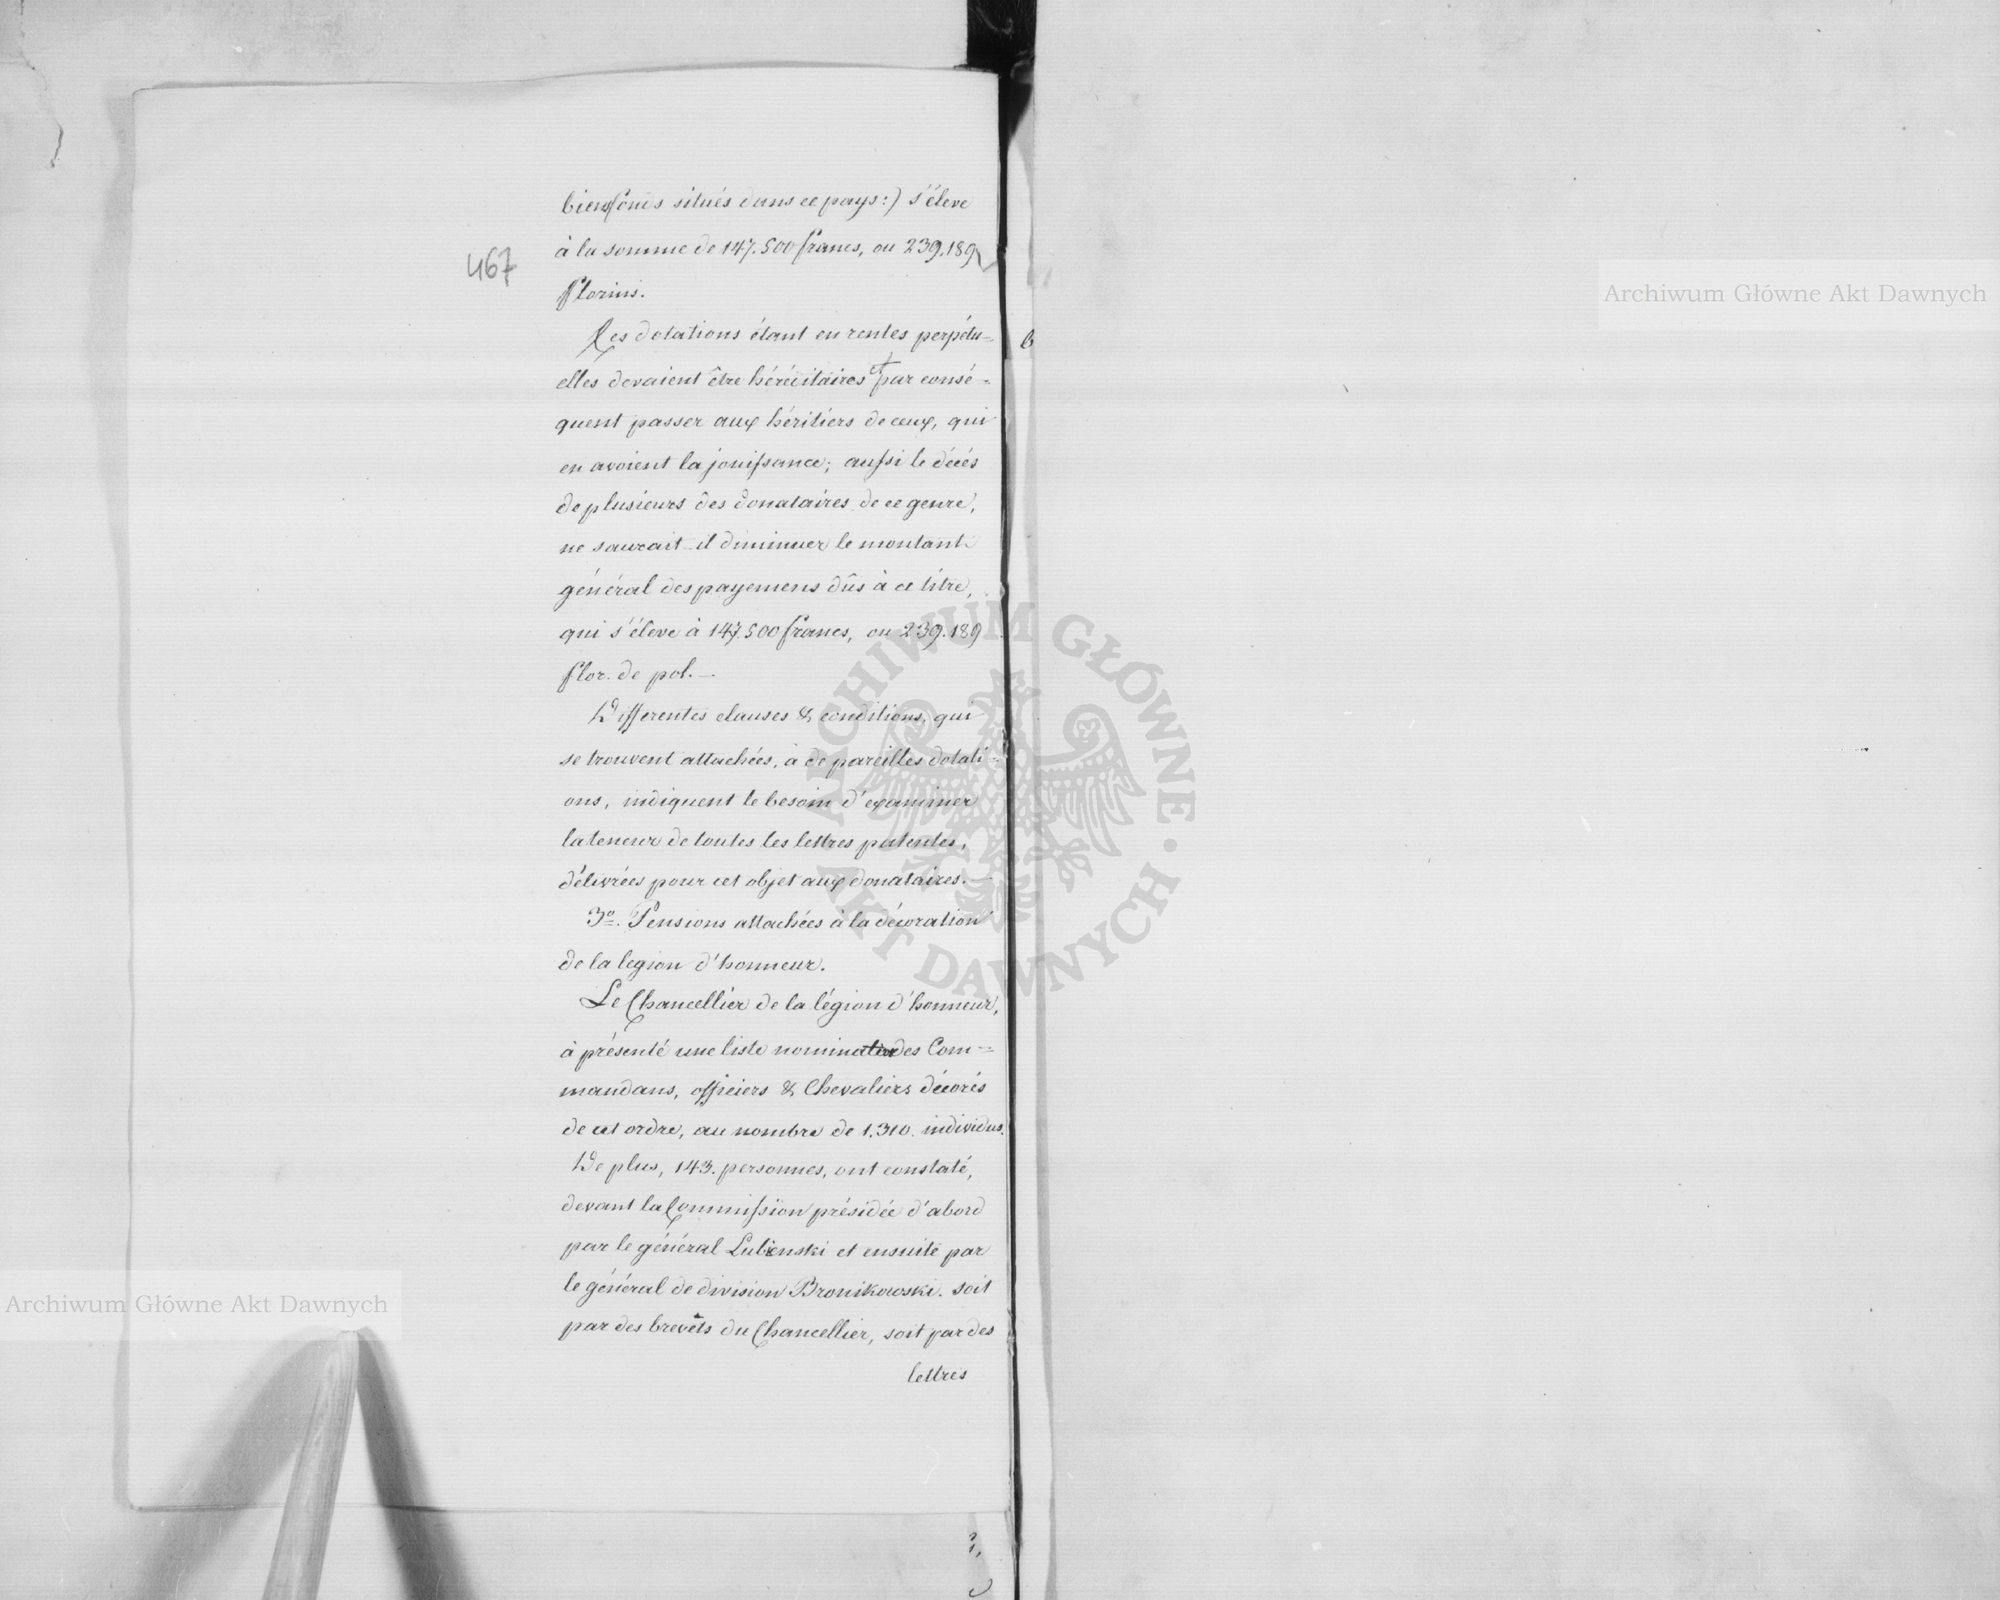 bienfonds situés dans ce pays:) s'éleve
à la somme de 147.500 francs, ou 239.189
467
florins.
Les dotations étant en rentes perpétu=
elles devaient être héréditaires et par consé=
quent passer aux héritiers de ceux, qui
en avoient la jouissance; aussi le décés
de plusieurs des donataires de ce genre,
ne saurait-il diminuer le montant
général des payemens dûs à ce titre,
qui s'éleve à 147.500 francs, ou 239.189
flor. de pol. —
Differentes clauses & conditions, qui
se trouvent attachées, à de pareilles dotati=
ons, indiquent le besoin d'examiner
la teneur de toutes les lettres patentes,
délivrées pour cet objet aux donataires. —
3º. Pensions attachées à la décoration
de la legion d'honneur.
Le Chancellier de la légion d'honneur,
à présenté une liste nominative des Com=
mandans, officiers & Chevaliers décorés
de cet ordre, au nombre de 1.310. individus.
De plus, 143. personnes, ont constaté,
devant la Commission présidée d'abord
par le général Lubienski et ensuite par
le général de division Bronikowski. soit
par des brevêts du Chancellier, soit par des
lettres
b
Archiwum Główne Akt Dawnych
Archiwum Główne Akt Dawnych
ARCHIWUM GŁÓWNE · AKT DAWNYCH ·